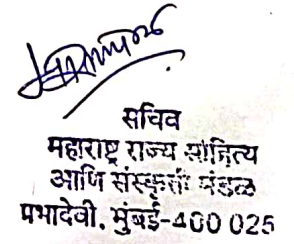 सचिव
महाराष्ट्र राज्य साहित्य
आणि संस्कृती मंडळ
प्रभादेवी, मुंबई-400 025